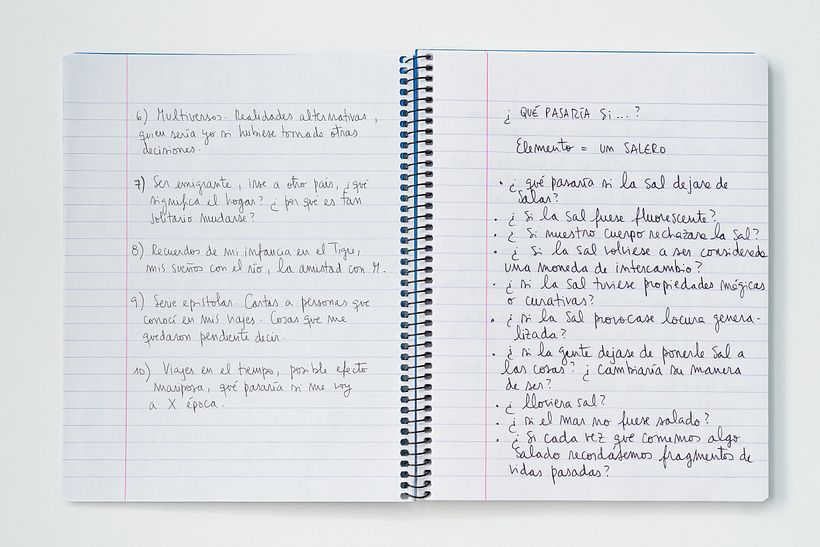 6) Multiversos. Realidades alternativas,
quien sería yo si hubiese tomado otras
decisiones.
7) Ser emigrante, irse a otro país, ¿qué
significa el hogar? ¿por qué es tan
solitario mudarse?
8) Recuerdos de mi infancia en el Tigre,
mis sueños con el río, la amistad con M.
9) Serie epistolar. Cartas a personas que
conocí en mis viajes. Cosas que me
quedaron pendiente decir.
10) Viajes en el tiempo, posible efecto
mariposa, qué pasaría si me voy
a X época.
¿QUÉ PASARÍA Si...?
Elemento = UM SALERO
· ¿qué pasaría si la sal dejase de
salar?
· ¿Si la sal fuese fluorescente?
· ¿Si nuestro cuerpo rechazara la sal?
· ¿Si la sal volviese a ser considerada
una moneda de intercambio?
· ¿si la sal tuviese propiedades mágicas
o curativas?
· ¿si la sal provocase locura genera-
lizada?
· ¿si la gente dejase de ponerle sal a
las cosas? ¿cambiaría su manera
de ser?
· ¿lloviera sal?
· ¿si el mar no fuese salado?
· ¿Si cada vez que comemos algo
salado recordásemos fragmentos de
vidas pasadas?